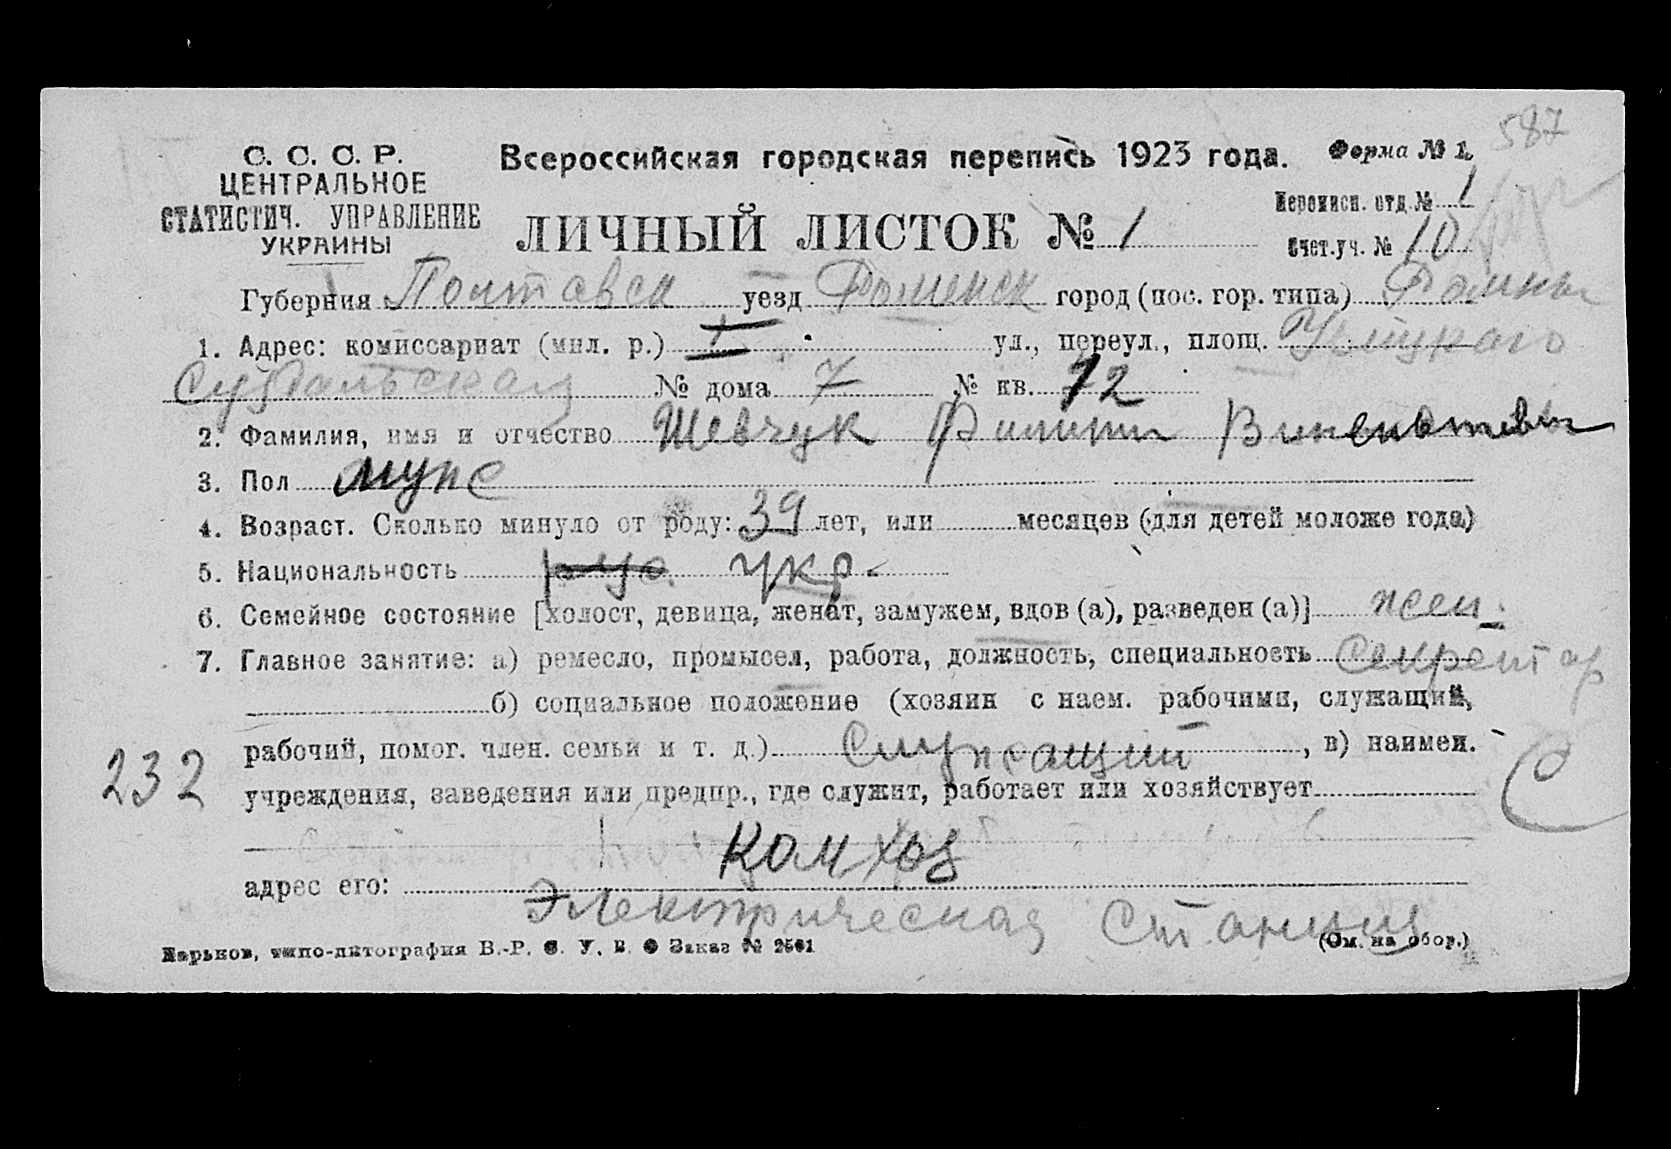 587
С. С. С. Р.
ЦЕНТРАЛЬНОЕ
СТАТИСТИЧ. УПРАВЛЕНИЕ
УКРАИНЫ
Всероссийская городская перепись 1923 года.
Форма № 1.
ЛИЧНЫЙ ЛИСТОК № 1
Переписн. отд. № 1
Счет. уч. № 10
Губерния Полтавск уезд Роменск город (пос. гор. типа) Ромны
1. Адрес: комиссариат (мил. р.) I ул., переул., площ. Урицкаго
Суздальская № дома 7 № кв. 12
2. Фамилия, имя и отчество Шевчук Филипп Викентьев
3. Пол муж
4. Возраст. Сколько минуло от роду: 39 лет, или месяцев (для детей моложе года)
5. Национальность рус. укр.
6. Семейное состояние [холост, девица, женат, замужем, вдов (а), разведен (а)] жен.
7. Главное занятие: а) ремесло, промысел, работа, должность, специальность Секретар
б) социальное положение (хозяин с наем. рабочими, служащий,
рабочий, помог. член. семьи и т. д.) Служащий, в) наимен.
232
учреждения, заведения или предпр., где служит, работает или хозяйствует
С
Комхоз
адрес его:
Электрическая Станция
Харьков, типо-литография В.-Р. С. У. В. Заказ № 2561
(См. на обор.)